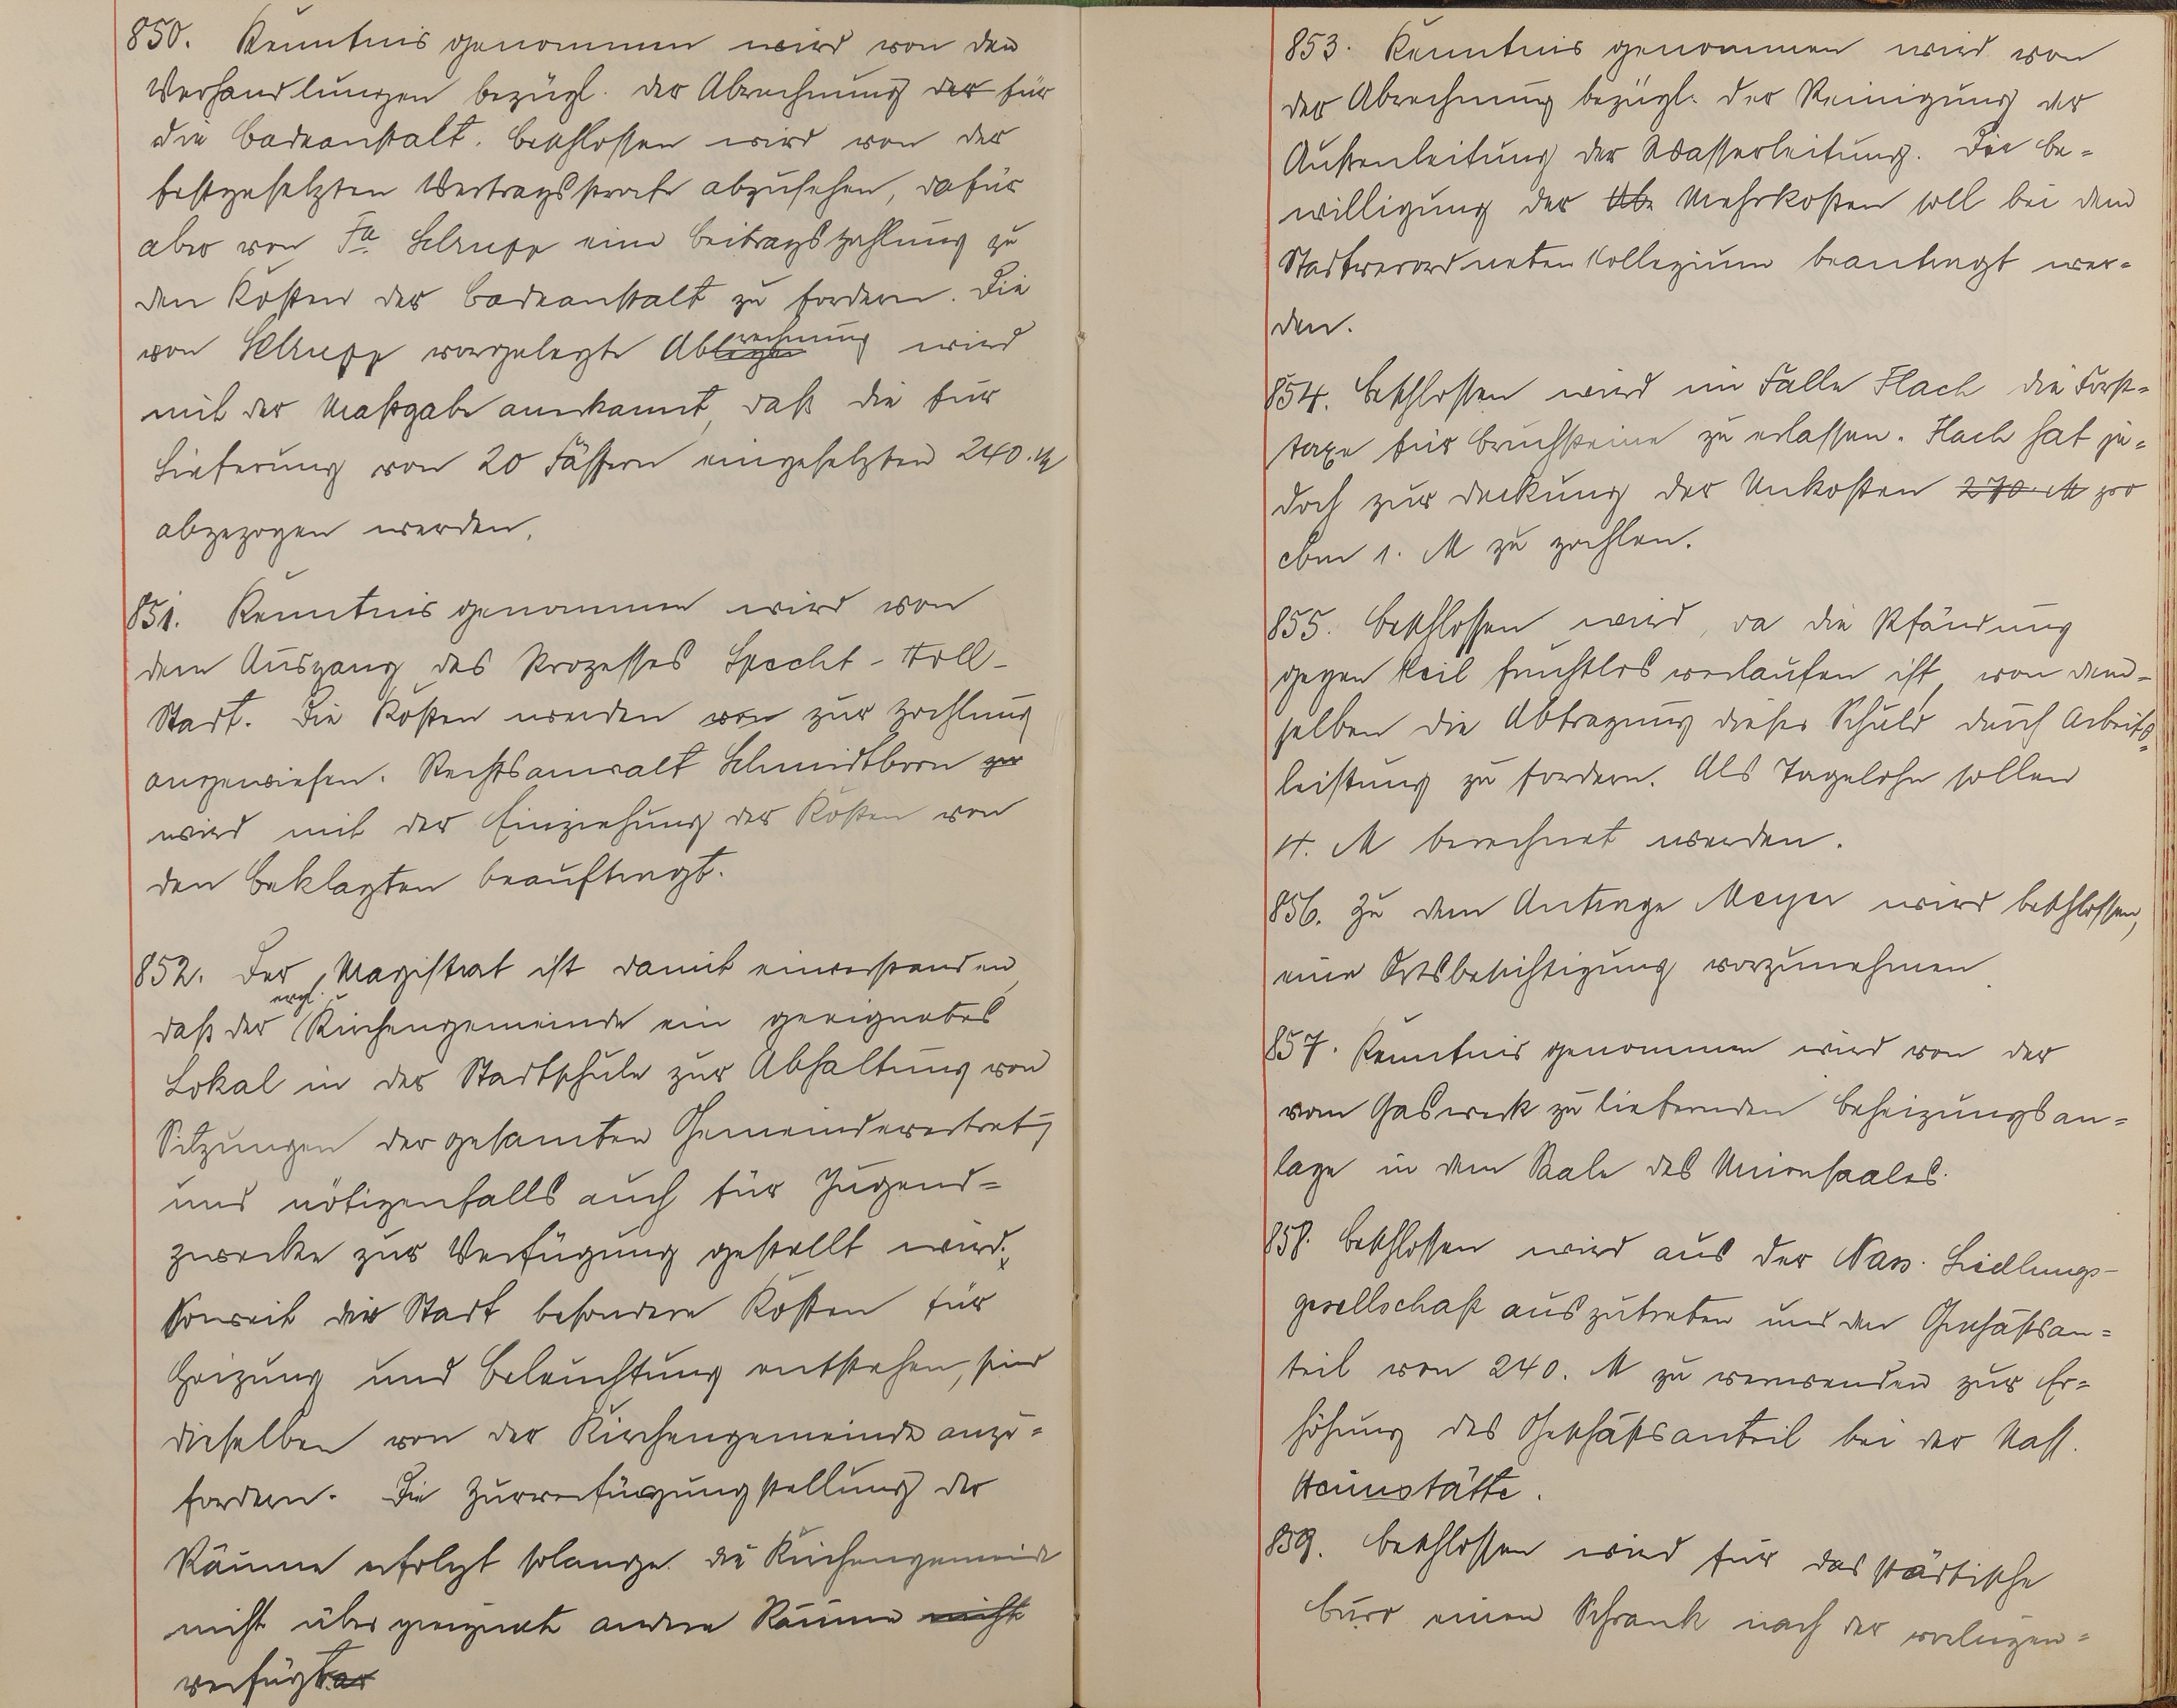 850. Kenntnis genommen wird von den
Verhandlungen bezügl. der Abrechnung der für
die Badeanstalt. Beschlossen wird von der
festgesetzten Vertragsstrafe abzusehen, dafür
aber von Fa Schrupp eine Beitragszahlung zu
den Kosten der Badeanstalt zu fordern. Die
von Schrupp vorgelegte Abrechnung wird
mit der Maßgabe anerkannt, daß die für
Lieferung von 20 Fässern eingesetzten 240. M
abgezogen werden.
851. Kenntnis genommen wird von
dem Ausgang des Prozesses Specht-Holl-
Stadt. Die Kosten werden von zur Zahlung
angewiesen. Rechtsanwalt Schmidtborn zur
wird mit der Einziehung der Kosten von
den Beklagten beauftragt.
852. Der Magistrat ist damit einverstanden,
daß der evgl. Kirchengemeinde ein geeignetes
Lokal in der Stadtschule zur Abhaltung von
Sitzungen der gesamten Gemeindevertretg
und nötigenfalls auch für Jugend-
zwecke zur Verfügung gestellt wird.
Soweit der Stadt besondere Kosten für
Heizung und Beleuchtung entstehen, sind
dieselben von der Kirchengemeinde anzu-
fordern. Die Zurverfügungstellung der
Räume erfolgt solange die Kirchengemeinde
nicht über geeignete andere Räume nicht
verfügbar
853. Kenntnis genommen wird von
der Abrechnung bezügl. der Reinigung der
Außenleitung der Wasserleitung. Die Be-
willigung der Mehrkosten soll bei dem
Stadtverordneten Kollegium beantragt wer-
den.
854. Beschlossen wird im Falle Flach die Forst-
taxe für Bruchsteine zu erlassen. Flach hat je-
doch zur Deckung der Unkosten 270 M pro
cbm 1. M zu zahlen.
855. Beschlossen wird, da die Pfändung
gegen Keil fruchtlos verlaufen ist, von dem-
selben die Abtragung dieser Schuld durch Arbeits-
leistung zu fordern. Als Tagelohn sollen
4. M berechnet werden.
856. Zu dem Antrage Meyer wird beschlossen,
eine Ortsbesichtigung vorzunehmen.
857. Kenntnis genommen wird von der
vom Gaswerk zu liefernden Beheizungsan-
lage in dem Saale des Unionsaales.
858. Beschlossen wird aus der Nass. Siedlungs-
gesellschaft auszutreten und den Geschäftsan-
teil von 240. M zu verwenden zur Er-
höhung des Geschäftsanteil bei der Nass.
Heimstätte.
859. Beschlossen wird für das städtische
Büro einen Schrank nach der vorliegen-